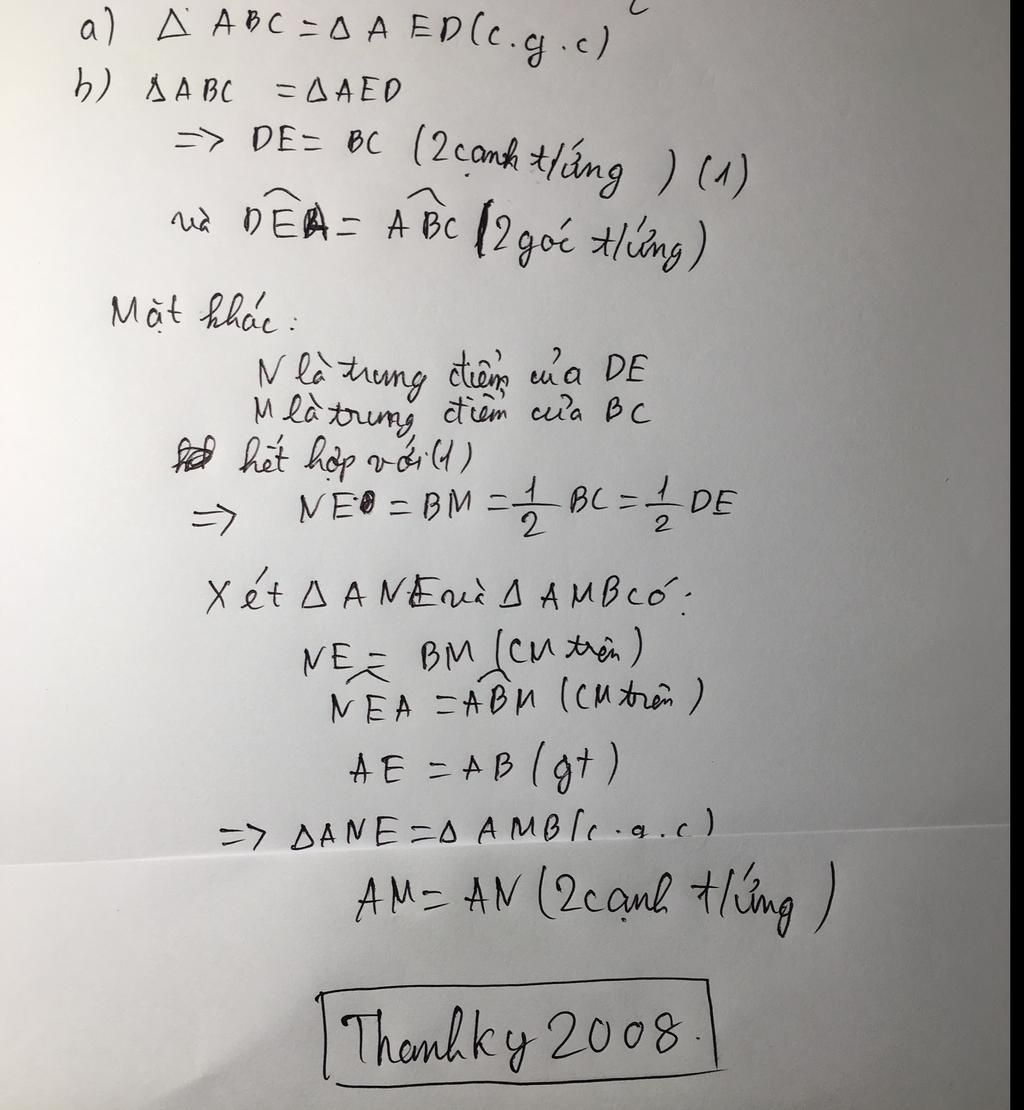 a) Δ ABC = Δ A ED (c.g.c)
b) ΔABC = ΔAED
=> DE = BC (2 cạnh t/ứng) (1)
và DEA = ABC (2 góc t/ứng)
Mặt khác:
N là trung điểm của DE
M là trung điểm của BC
kết hợp với (1)
=> NE = BM = 1/2 BC = 1/2 DE
Xét Δ ANE và Δ AMB có:
NE = BM (CM trên)
NEA = ABM (CM trên)
AE = AB (gt)
=> ΔANE = Δ AMB (c.g.c)
AM = AN (2 cạnh t/ứng)
Thanhky 2008.